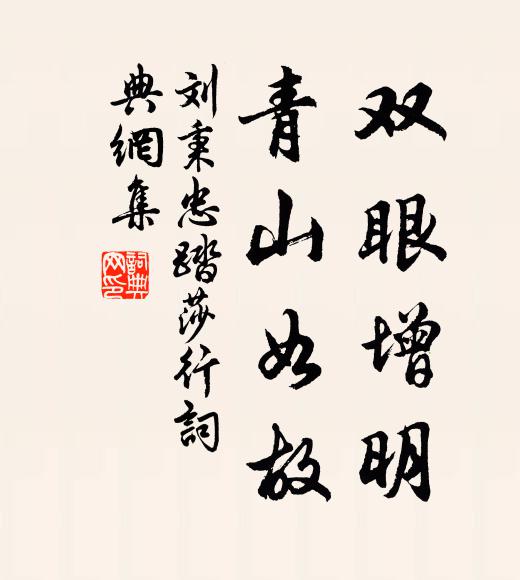 双眼增明
青山如故
刘秉忠踏莎行詞
典網集
詞典网印